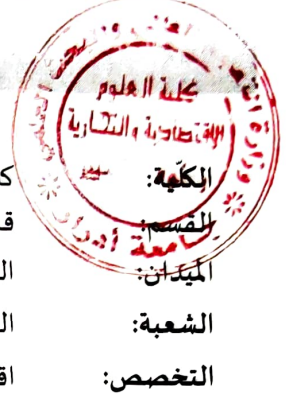 كلية العلوم
الاقتصادية والتجارية
جامعة أدرار
الكلّية: ك
القسم: ق
الميدان: ال
الشعبة: ال
التخصص: اق